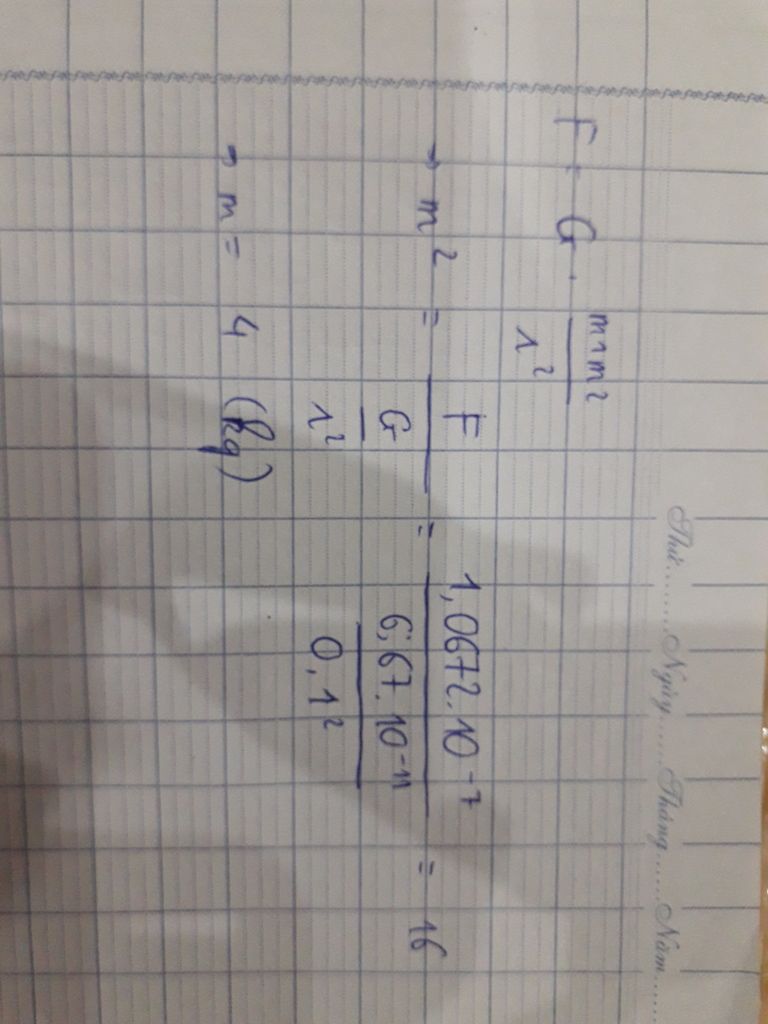 Thứ.......Ngày.......Tháng.......Năm.......
F = G . m1m2 / r²
→ m² = F / (G / r²) = 1,0672.10⁻⁷ / (6,67.10⁻¹¹ / 0,1²) = 16
→ m = 4 (kg)